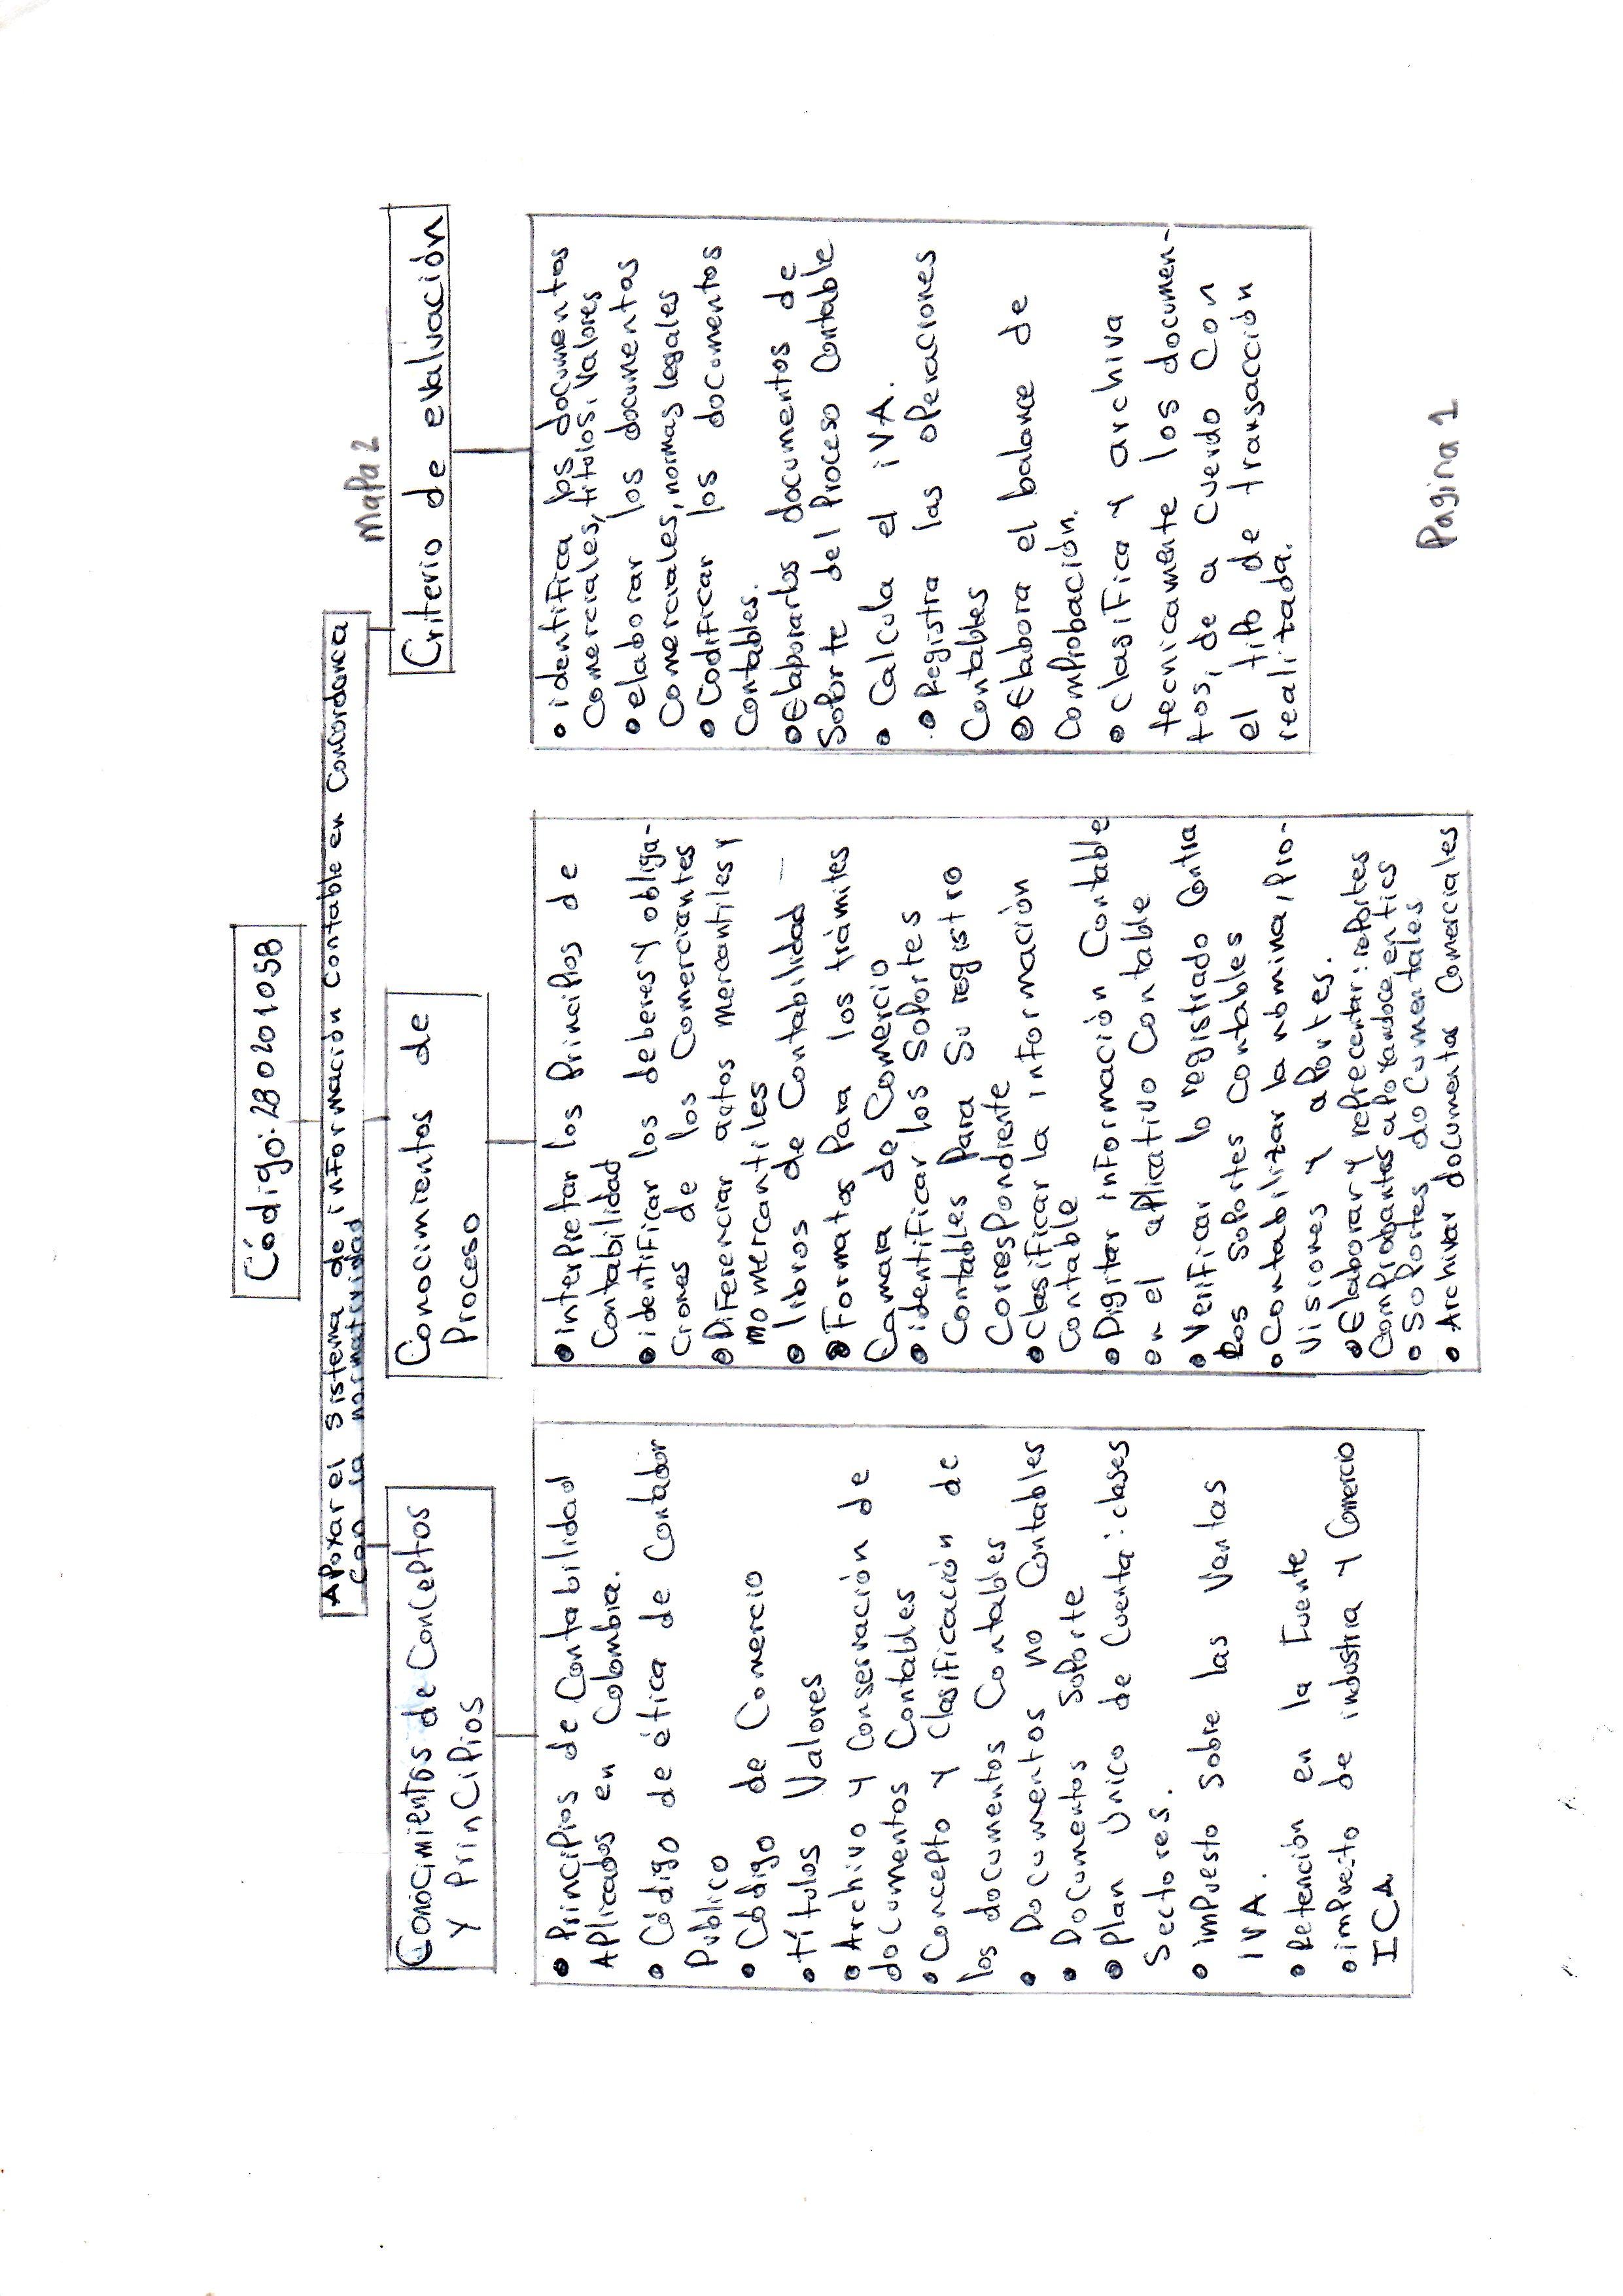 mapa 2
Código: 280201058
Apoyar el sistema de información contable en concordancia
con la normatividad
Conocimientos de conceptos
y principios
• Principios de contabilidad
Aplicados en Colombia.
• Código de ética de contador
Publico
• Código de Comercio
• títulos Valores
• Archivo y conservación de
documentos contables
• Concepto y clasificación de
los documentos contables
• Documentos no contables
• Documentos soporte
• plan único de cuenta: clases
sectores.
• impuesto sobre las ventas
IVA.
• Retención en la fuente
• impuesto de industria y comercio
ICA
Conocimientos de
Proceso
• interpretar los principios de
contabilidad
• identificar los deberes y obliga-
ciones de los comerciantes
• Diferenciar actos mercantiles y
no mercantiles
• libros de contabilidad
• Formatos para los trámites
Camara de comercio
• identificar los soportes
contables para su registro
correspondiente
• clasificar la información
contable
• Digitar información contable
en el aplicativo contable
• Verificar lo registrado contra
los soportes contables
• contabilizar la nomina, pro-
visiones y aportes.
• Elaborar y reprecentar: reportes
comprobantes apoyandoce en tics
• Soportes documentales
• Archivar documentos comerciales
Criterio de evaluación
• identifica los documentos
comerciales, titulos, valores
• elaborar los documentos
comerciales, normas legales
• codificar los documentos
contables.
• Elaborarlos documentos de
soporte del proceso contable
• Calcula el iVA.
• Registra las operaciones
contables
• Elabora el balance de
comprobación.
• clasifica y archiva
tecnicamente los documen-
tos, de a cuerdo con
el tipo de transacción
realizada.
Pagina 1